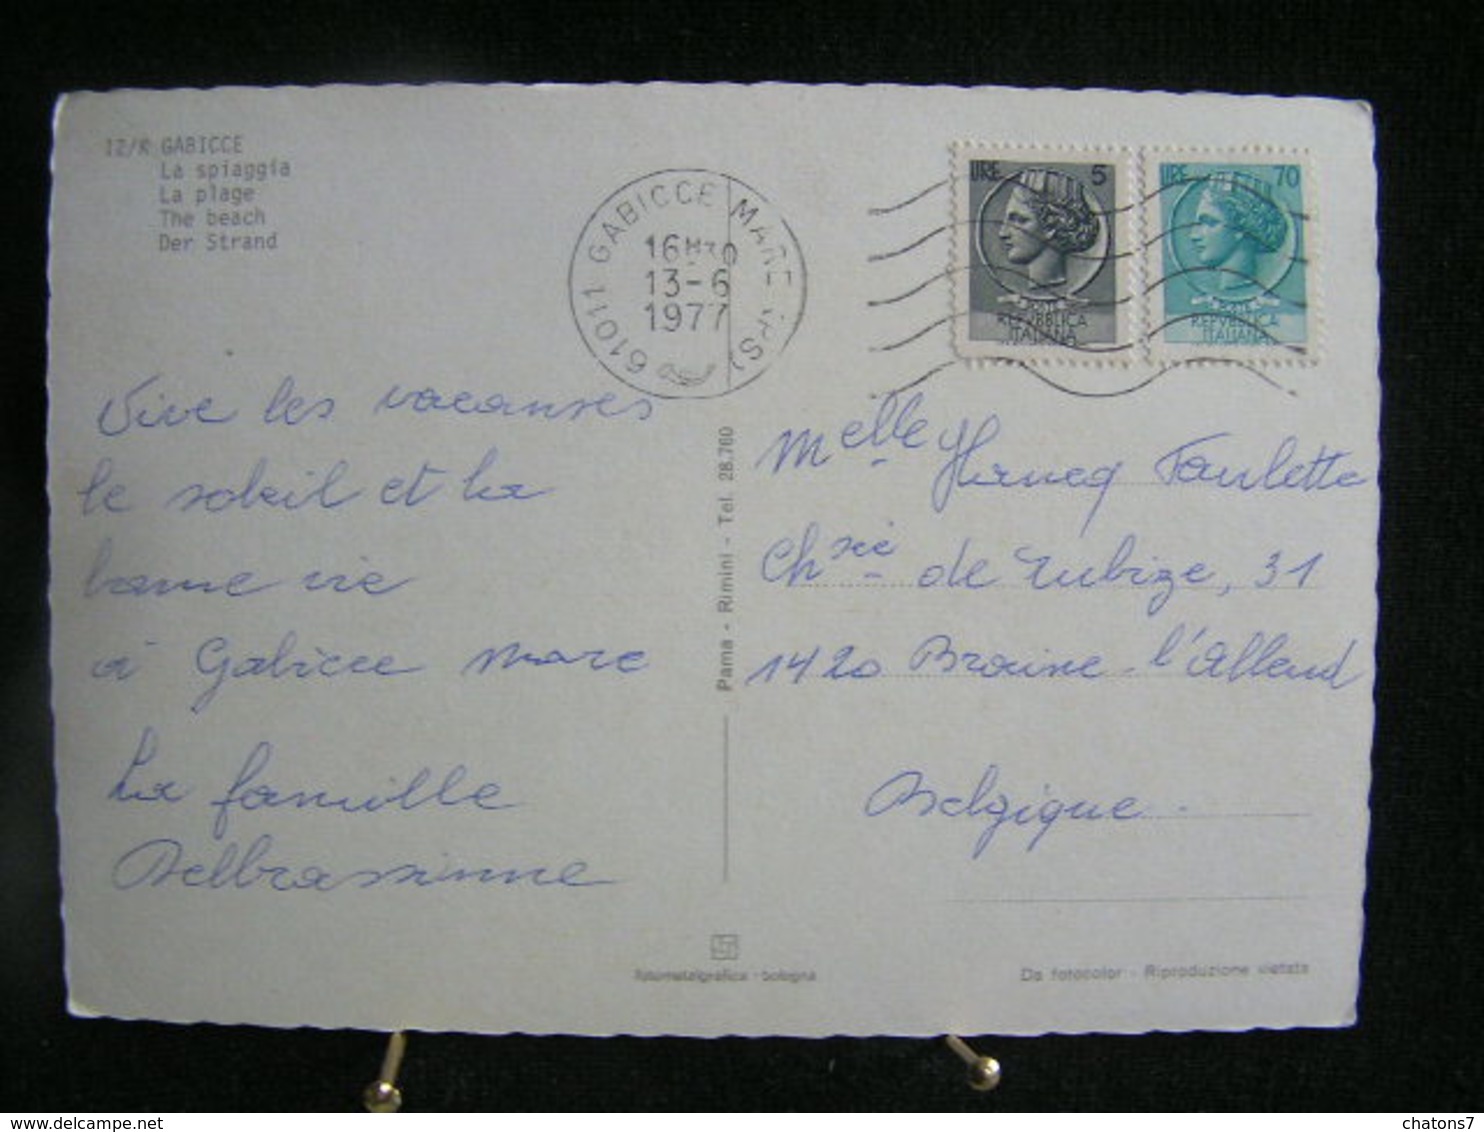 12/R GABICCE
La spiaggia
La plage
The beach
Der Strand
61011 GABICCE MARE (PS)
16H30
13-6
1977
LIRE 5
REPVBBLICA
ITALIANA
LIRE 70
REPVBBLICA
ITALIANA
Vive les vacances
le soleil et la
bonne vie
à Gabicce mare
La famille
Delbrassinne
Pama - Rimini - Tel. 28.760
Melle Hancq Paulette
Chsée de Tubize, 31
1420 Braine l'Alleud
Belgique.
fotometalgrafica - bologna
Da fotocolor - Riproduzione vietata
chatons7